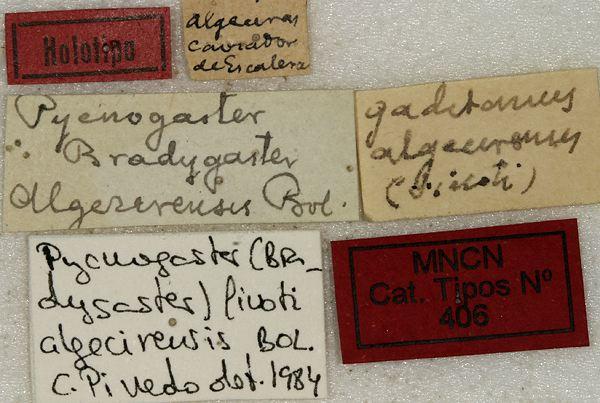 Holotipo
algeciras
cazador
de Escalera
Pycnogaster
Bradygaster
Algezirensis Bol.
gaditanus
algecirensis
(Finoti)
Pycnogaster (BRA_
dygaster) finoti
algecirensis BOL.
C. Pinedo det. 1984
MNCN
Cat. Tipos Nº
406